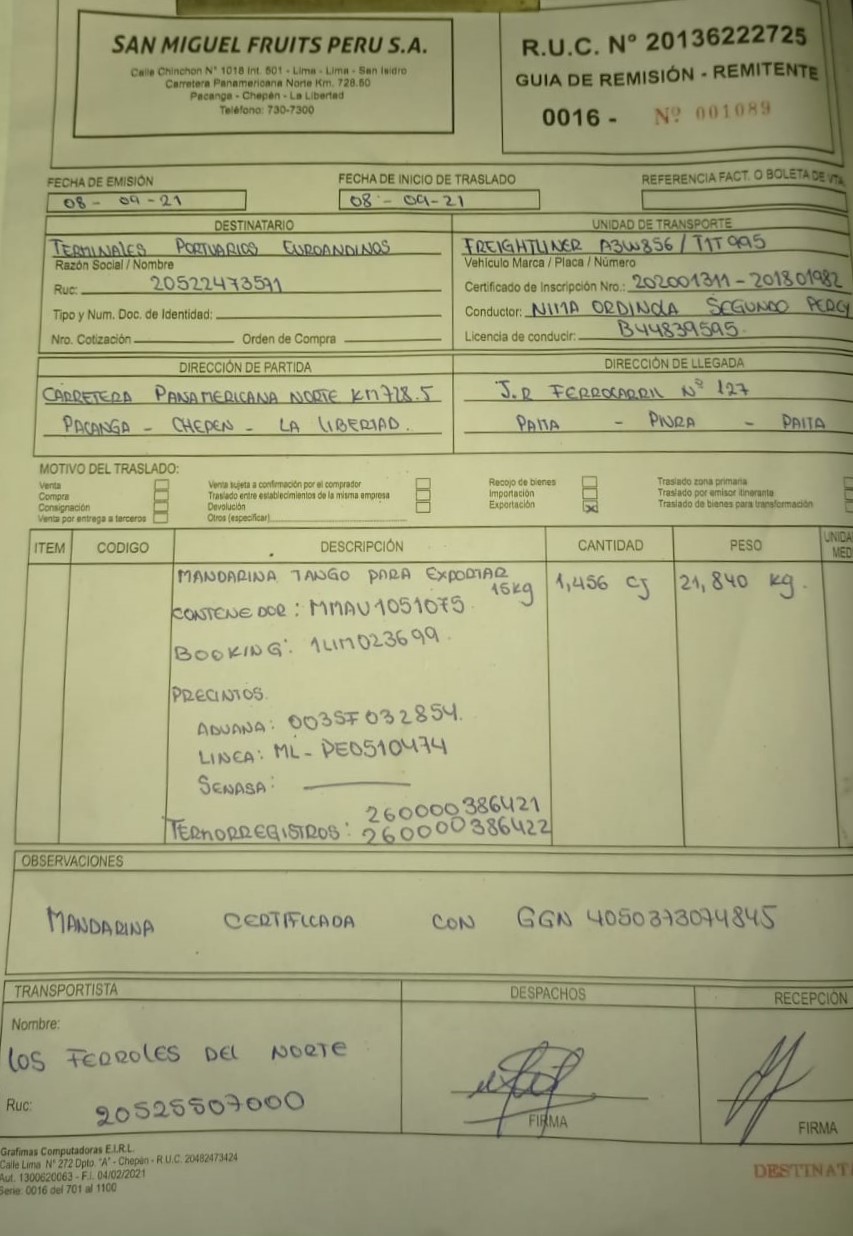 SAN MIGUEL FRUITS PERU S.A.
Calle Chinchon N° 1018 Int. 501 - Lima - Lima - San Isidro
Carretera Panamericana Norte Km. 728.50
Pacanga - Chepén - La Libertad
Teléfono: 730-7300
R.U.C. N° 20136222725
GUIA DE REMISIÓN - REMITENTE
0016 - Nº 001089
FECHA DE EMISIÓN
08 - 09 - 21
FECHA DE INICIO DE TRASLADO
08 - 09 - 21
REFERENCIA FACT. O BOLETA DE VTA.
DESTINATARIO
TERMINALES PORTUARIOS EUROANDINOS
Razón Social / Nombre
Ruc: 20522473591
Tipo y Num. Doc. de Identidad:
Nro. Cotización Orden de Compra
UNIDAD DE TRANSPORTE
FREIGHTLINER A3W856 / T1T995
Vehículo Marca / Placa / Número
Certificado de Inscripción Nro.: 202001311 - 201801982
Conductor: NIMA ORDINOLA SEGUNDO PERCY
Licencia de conducir: B44839595
DIRECCIÓN DE PARTIDA
CARRETERA PANAMERICANA NORTE KM728.5
PACANGA - CHEPEN - LA LIBERTAD.
DIRECCIÓN DE LLEGADA
J.R FERROCARRIL Nº 127
PAITA - PIURA - PAITA
MOTIVO DEL TRASLADO:
Venta
Compra
Consignación
Venta por entrega a terceros
Venta sujeta a confirmación por el comprador
Traslado entre establecimientos de la misma empresa
Devolución
Otros (especificar)
Recojo de bienes
Importación
Exportación X
Traslado zona primaria
Traslado por emisor itinerante
Traslado de bienes para transformación
ITEM CODIGO DESCRIPCIÓN CANTIDAD PESO UNIDA
MED
MANDARINA TANGO PARA EXPORTAR 15kg 1,456 CJ 21,840 kg.
CONTENEDOR: MMAU1051075
BOOKING: 1LIM023699
PRECINTOS.
ADUANA: 003SF032854.
LINEA: ML-PE0510474
SENASA:
TERMORREGISTROS: 260000386421
260000386422
OBSERVACIONES
MANDARINA CERTIFICADA CON GGN 4050373074845
TRANSPORTISTA
Nombre:
LOS FERROLES DEL NORTE
Ruc: 20525507000
DESPACHOS
FIRMA
RECEPCIÓN
FIRMA
Grafimas Computadoras E.I.R.L.
Calle Lima N° 272 Dpto. "A" - Chepén - R.U.C. 20482473424
Aut. 1300620063 - F.I. 04/02/2021
Serie: 0016 del 701 al 1100
DESTINATA